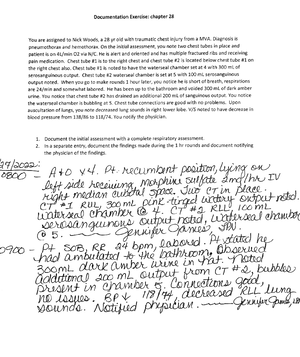 Documentation Exercise: chapter 28
You are assigned to Nick Woods, a 28 yo pt with traumatic chest injury from a MVA. Diagnosis is
pneumothorax and hemothorax. On the initial assessment, you note two chest tubes in place and
patient is on 4L/min O2 via N/C. He is alert and oriented and has multiple fractured ribs and receiving
pain medication. Chest tube #1 is to the right chest and chest tube #2 is located below chest tube #1 on
the right chest also. Chest tube #1 is noted to have the waterseal chamber set at 4 with 300 mL of
serosanguinous output. Chest tube #2 waterseal chamber is set at 5 with 100 mL serosanguinous
output noted. When you go to make rounds 1 hour later, you notice he is short of breath, respirations
are 24/min and somewhat labored. He has been up to the bathroom and voided 300mL of dark amber
urine. You notice that chest tube #2 has drained an additional 200 mL of sanguinous output. You notice
the waterseal chamber is bubbling at 5. Chest tube connections are good with no problems. Upon
auscultation of lungs, you note decreased lung sounds in right lower lobe. V/S noted to have decrease in
blood pressure from 138/86 to 118/74. You notify the physician.
1. Document the initial assessment with a complete respiratory assessment.
2. In a separate entry, document the findings made during the 1 hr rounds and document notifying
the physician of the findings.
0800 - A+O x 4. Pt. recumbent position, lying on
left side receiving morphine sulfate 2mg/hr IV
right median cubital space. Two CT in place.
CT #1 RUL, 300mL pink-tinged watery output noted.
Waterseal chamber @ 4. CT #2 RLL, 100mL
serosanguineous output noted, waterseal chamber
@ 5. Jennifer James
0900 - Pt SOB, RR 24 bpm, labored. Pt stated he
had ambulated to the bathroom, observed
300mL dark amber urine in hat. Noted
additional 200 mL output from CT #2, bubbles
present in chamber 5. Connections good,
no issues. BP ↓ 118/74, decreased RLL lung
sounds. Notified physician. Jennifer James